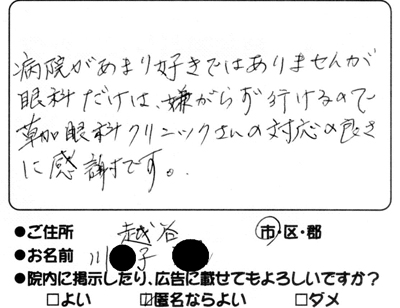 病院があまり好きではありませんが
眼科だけは、嫌がらず行けるので
草加眼科クリニックさんの対応の良さ
に感謝です。
●ご住所 越谷 市・区・郡
●お名前 川 子
●院内に掲示したり、広告に載せてもよろしいですか?
□よい ☑匿名ならよい □ダメ